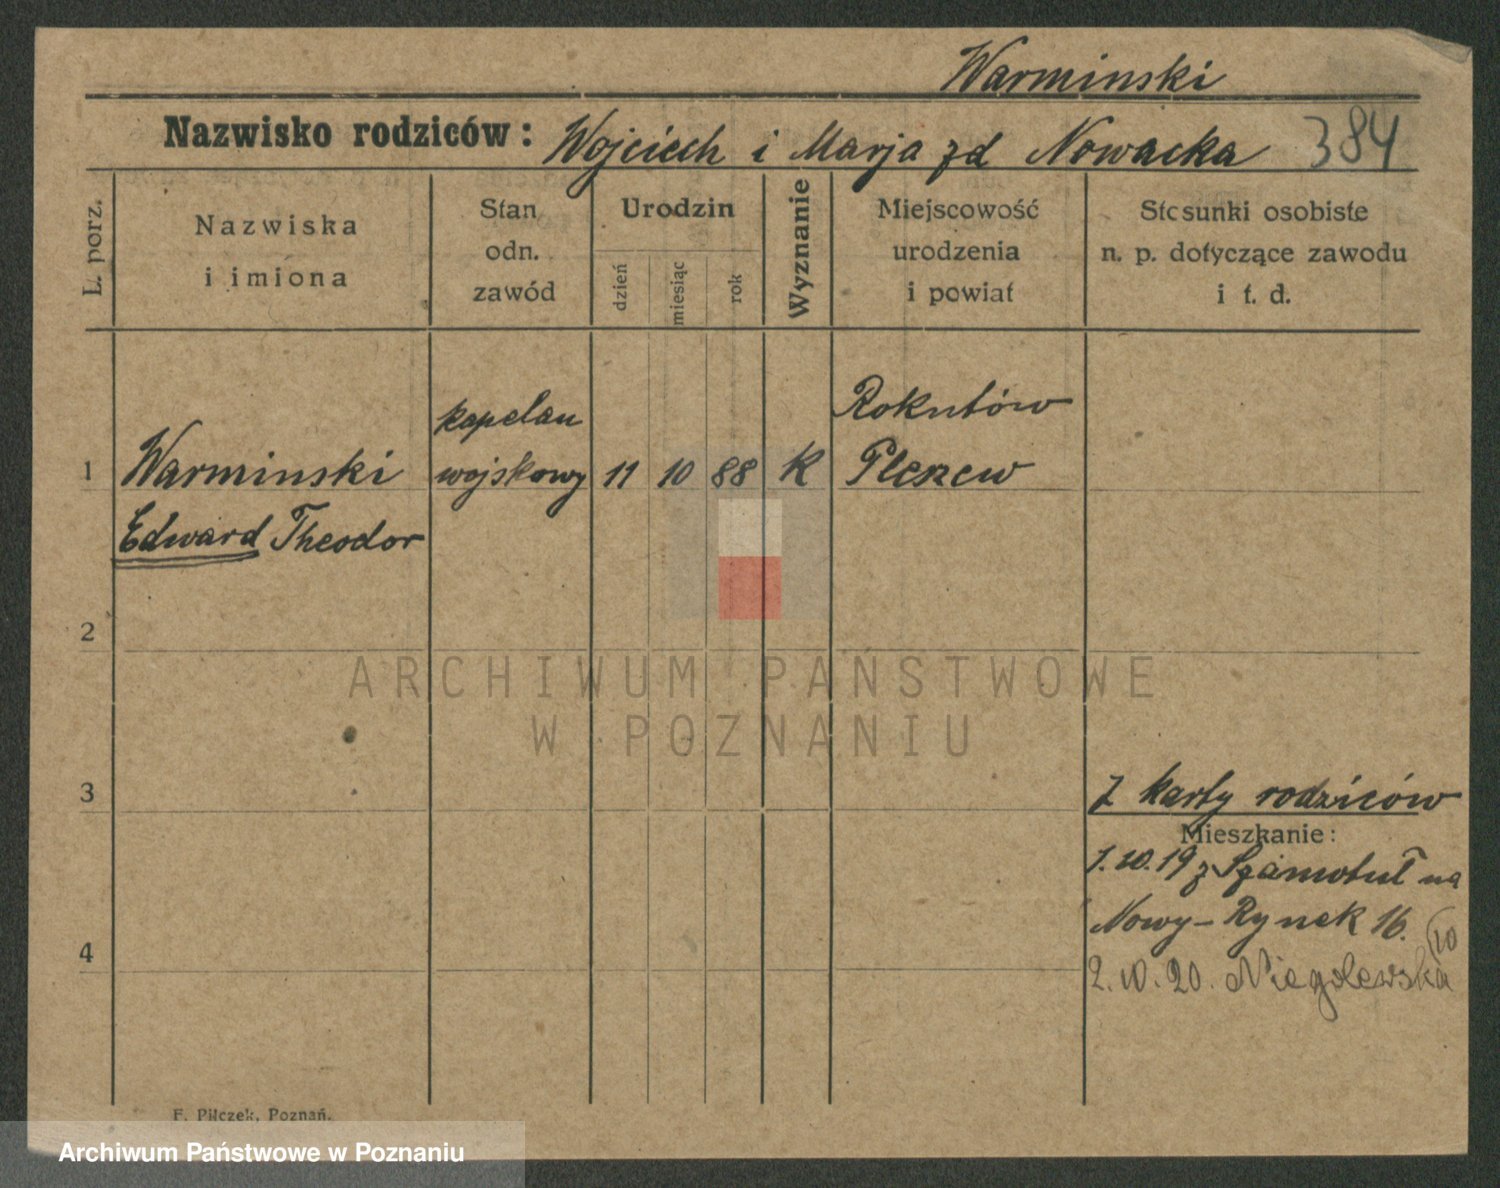 Warminski
Nazwisko rodziców: Wojciech i Marja zd Nowacka 384
L. porz.
Nazwiska
i imiona
Stan
odn.
zawód
Urodzin
dzień
miesiąc
rok
Wyznanie
Miejscowość
urodzenia
i powiat
Stosunki osobiste
n. p. dotyczące zawodu
i t. d.
kapelan
Rokutów
1 Warminski wojskowy 11 10 88 K Pleszew
Edward Theodor
2
ARCHIWUM PAŃSTWOWE
W POZNANIU
3
Z karty rodziców
Mieszkanie:
1.10.19 z Szamotuł na
Nowy-Rynek 16.
10
4
2.10.20. Niegolewska
F. Pilczek, Poznań.
Archiwum Państwowe w Poznaniu